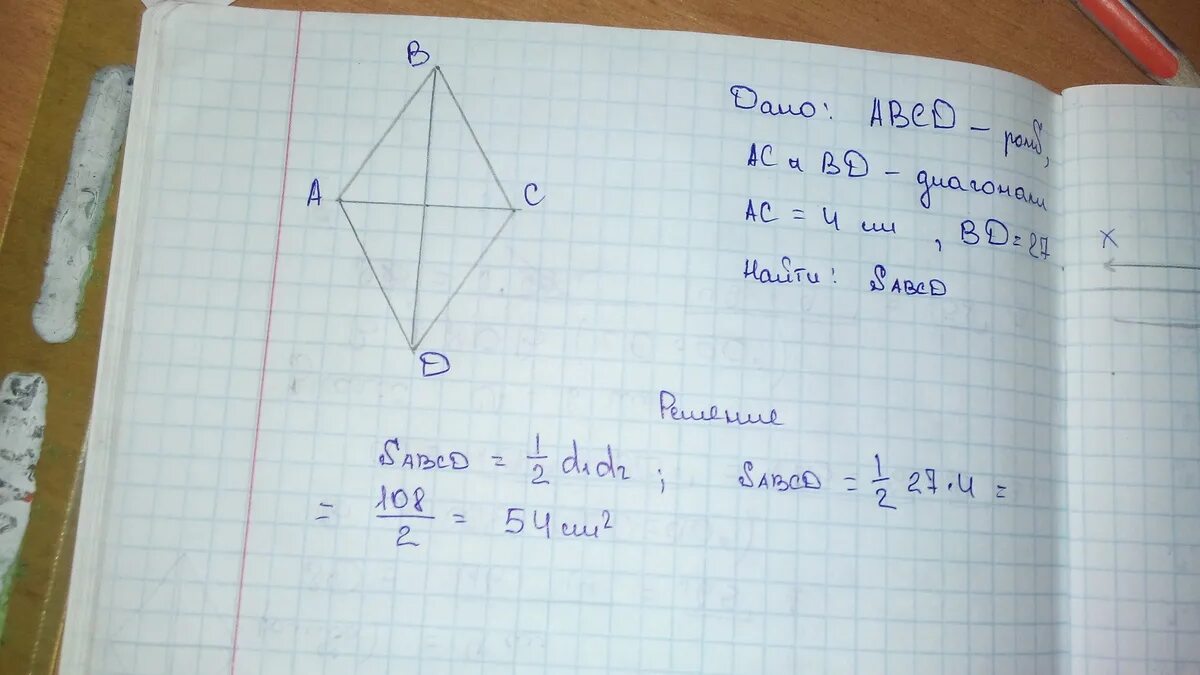 B
A
C
D
Дано: ABCD – ромб,
AC и BD – диагонали
AC = 4 см, BD = 27
Найти: SABCD
x
Решение
SABCD = 1/2 d1d2; SABCD = 1/2 27·4 =
= 108/2 = 54 см²